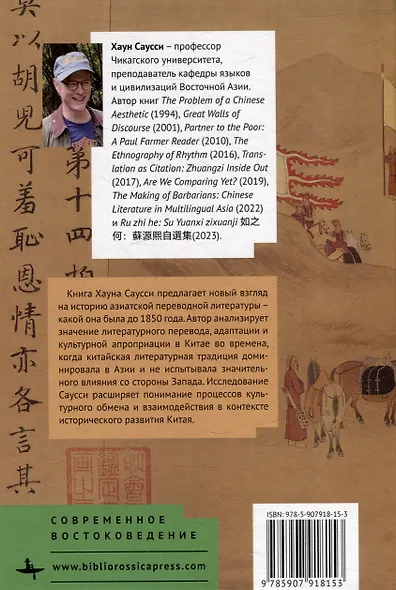 莫以胡兒可羞恥恩情亦各言其
第十四拍
Хаун Саусси – профессор
Чикагского университета,
преподаватель кафедры языков
и цивилизаций Восточной Азии.
Автор книг The Problem of a Chinese
Aesthetic (1994), Great Walls of
Discourse (2001), Partner to the Poor:
A Paul Farmer Reader (2010), The
Ethnography of Rhythm (2016), Trans-
lation as Citation: Zhuangzi Inside Out
(2017), Are We Comparing Yet? (2019),
The Making of Barbarians: Chinese
Literature in Multilingual Asia (2022)
и Ru zhi he: Su Yuanxi zixuanji 如之
何：蘇源熙自選集(2023).
Книга Хауна Саусси предлагает новый взгляд
на историю азиатской переводной литературы –
какой она была до 1850 года. Автор анализирует
значение литературного перевода, адаптации и
культурной апроприации в Китае во времена,
когда китайская литературная традиция доми-
нировала в Азии и не испытывала значитель-
ного влияния со стороны Запада. Исследование
Саусси расширяет понимание процессов куль-
турного обмена и взаимодействия в контексте
исторического развития Китая.
СОВРЕМЕННОЕ
ВОСТОКОВЕДЕНИЕ
www.bibliorossicapress.com
ISBN: 978-5-907918-15-3
9 785907 918153